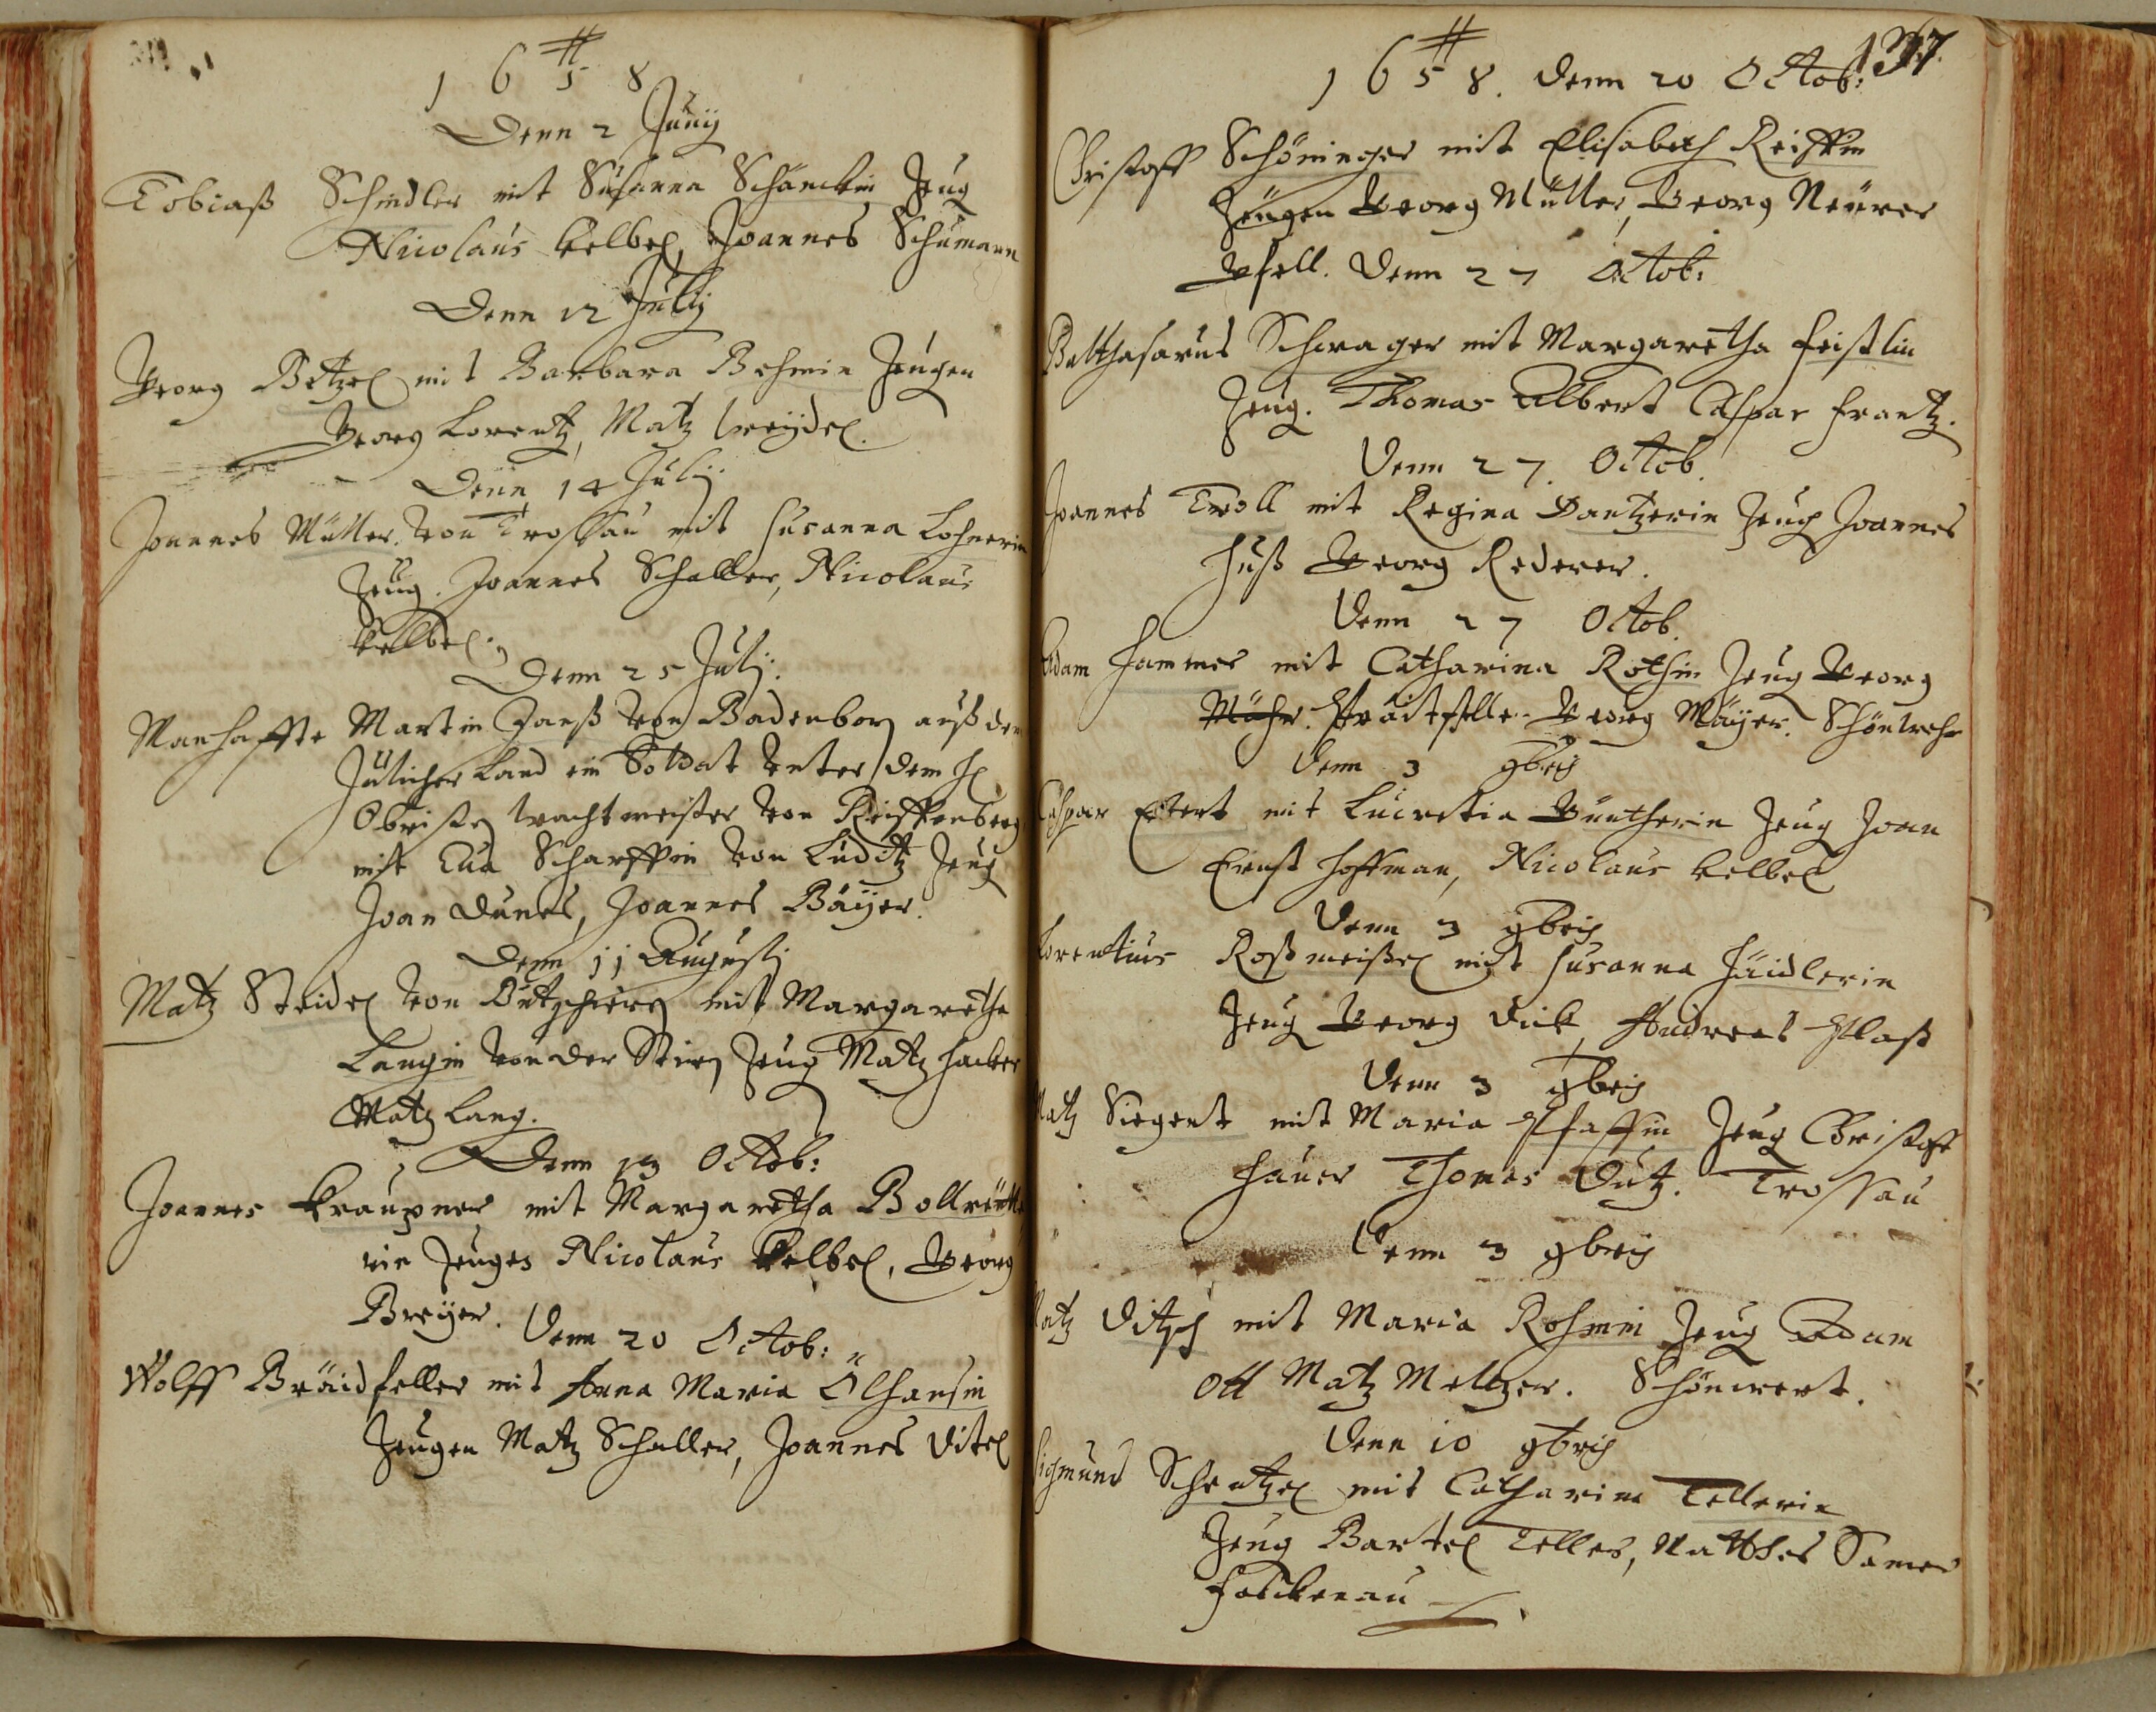 1 6 5 8
Denn 2 Junij
Tobiaß Schindler mit Susanna Schanckin Zeug
Nicolaus Kelbel, Joannes Schumann
Denn 12 Julij
Georg Betzel mit Barbara Behmin Zeugen
Georg Lorentz, Matz
Denn 14 Julij
Joannes Müller von Trossau mit Susanna Lohnerin
Zeug. Joannes Schaller, Nicolaus
Kelbel.
Denn 25 Julij:
Manhaffte Martin Janß von Badenborn auß dem
Jülicher Land ein Soldat unter dem H
Obristen wachtmeister von Reiffenberg
mit Eua Scharffin von Luditz Zeug
Joan Dunes, Joannes Bäÿer.
Denn 11 Augusti
Matz Steidel von mit Margaretha
Langin von der Zeug Matz Hacker
Matz Lang.
Denn 13 Octob:
Joannes Kraupner mit Margaretha
rin Zeuges Nicolaus Kelbel, Georg
Breÿer. Denn 20 Octob:
Wolff Bräidfelder mit Anna Maria Ölhansin
Zeugen Matz Schaller, Joannes Ditel
137
1 6 5 8. Denn 20 Octob:
Christoff Schöninger mit Elisabeth Reiffin
Zeugen Georg Müller, Georg Neürer
Gsell. Denn 27 Octob:
Balthasarus Schwager mit Margaretha Feistlin
Zeug. Thomas Albert Caspar Frantz.
Denn 27. Octob.
Joannes Troll mit Regina Dantzerin Zeug Joannes
Huß Georg Rederer.
Denn 27 Octob.
Adam Hammer mit Catharina Rothin Zeug Georg
Georg Mäÿer. Schönwehr
Denn 3 9bris
Caspar Eckert mit Lucretia Güntherin Zeug Joan
Ernst Hoffman, Nicolaus Kelbel
Denn 3 9bris
Lorentius Roßmeißel mit Susanna Häidlerin
Zeug Georg Dick, Andreas Plaß
Denn 3 9bris
Matz Siegert mit Maria Pfaffin Zeug Christoff
Hauer Thomas Dutz. Trossau
Denn 3 9bris
Matz Ditzsch mit Maria Rohmin Zeug Adam
Ott Matz Meltzer. Schönwert.
Denn 10 9bris
Sigmund Schentzel mit Catharina Tellerin
Zeug Bartel Teller, Matthes Samer
Falckenau